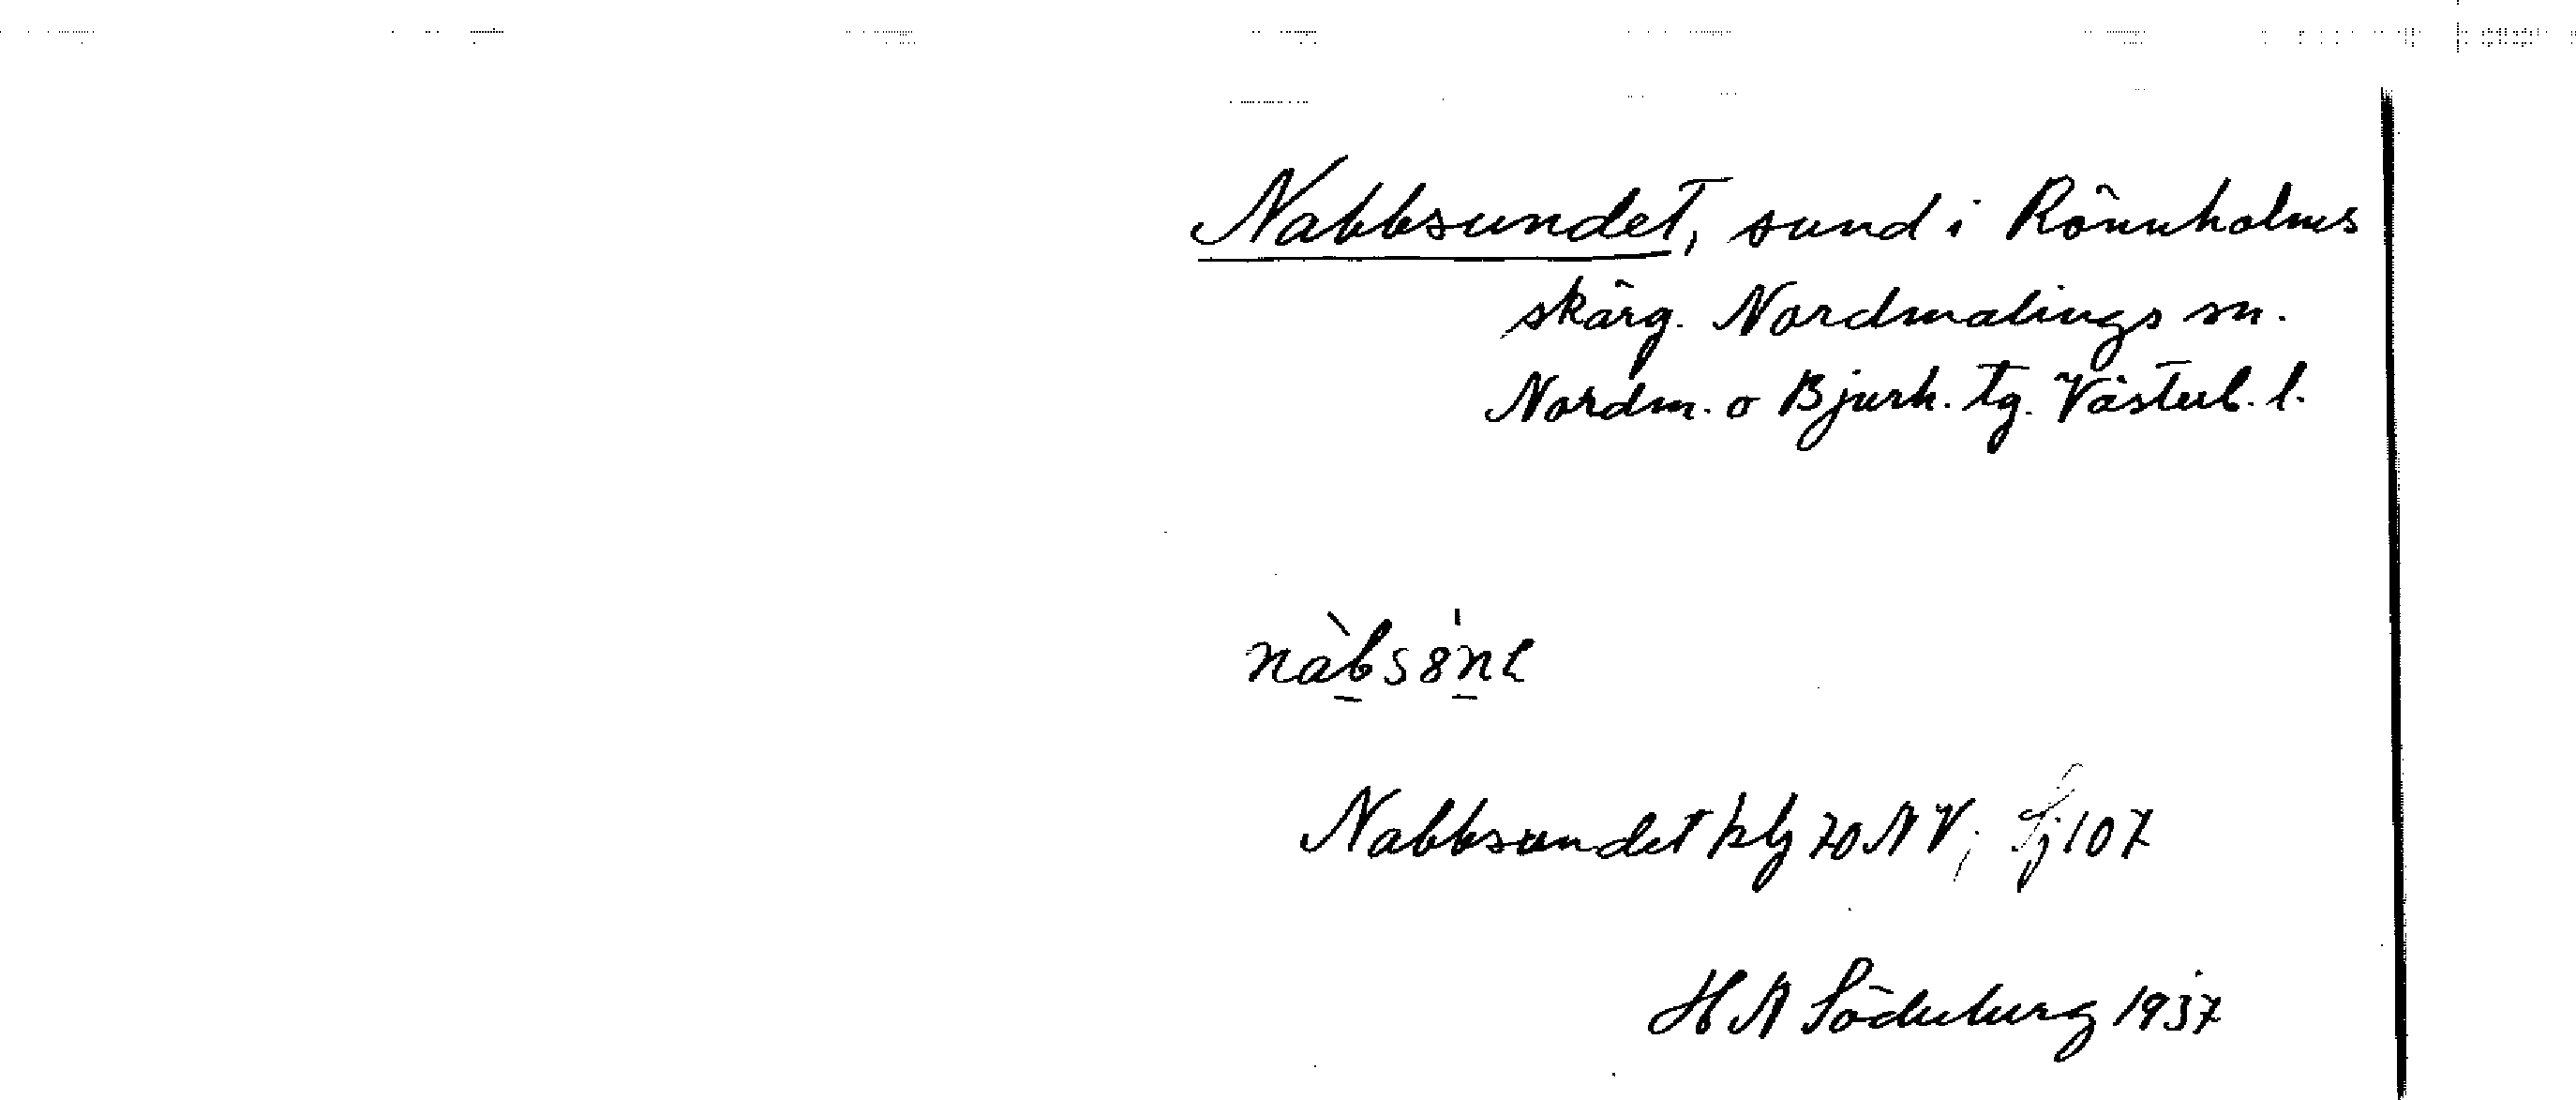 Nabbsundet, sund i Rönnholms
skärg. Nordmalings sn.
Nordm. o Bjurh. tg. Västerb. l.
nàbs8nt
Nabbsundet klj 70 NV; Sj 107
H N Söderberg 1937